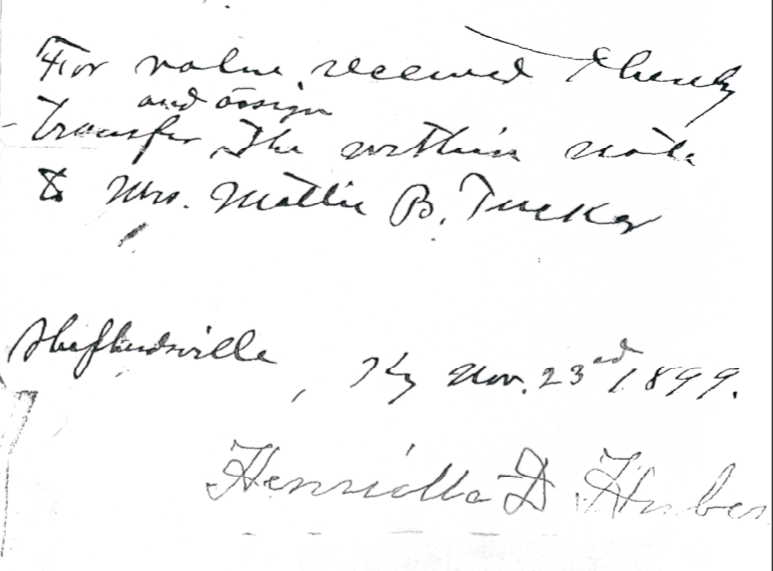 For value received I hereby
and assign
transfer the within note
to Mrs. Mattie B. Tucker
Shepherdsville, Ky Nov. 23rd 1899.
Henrietta D